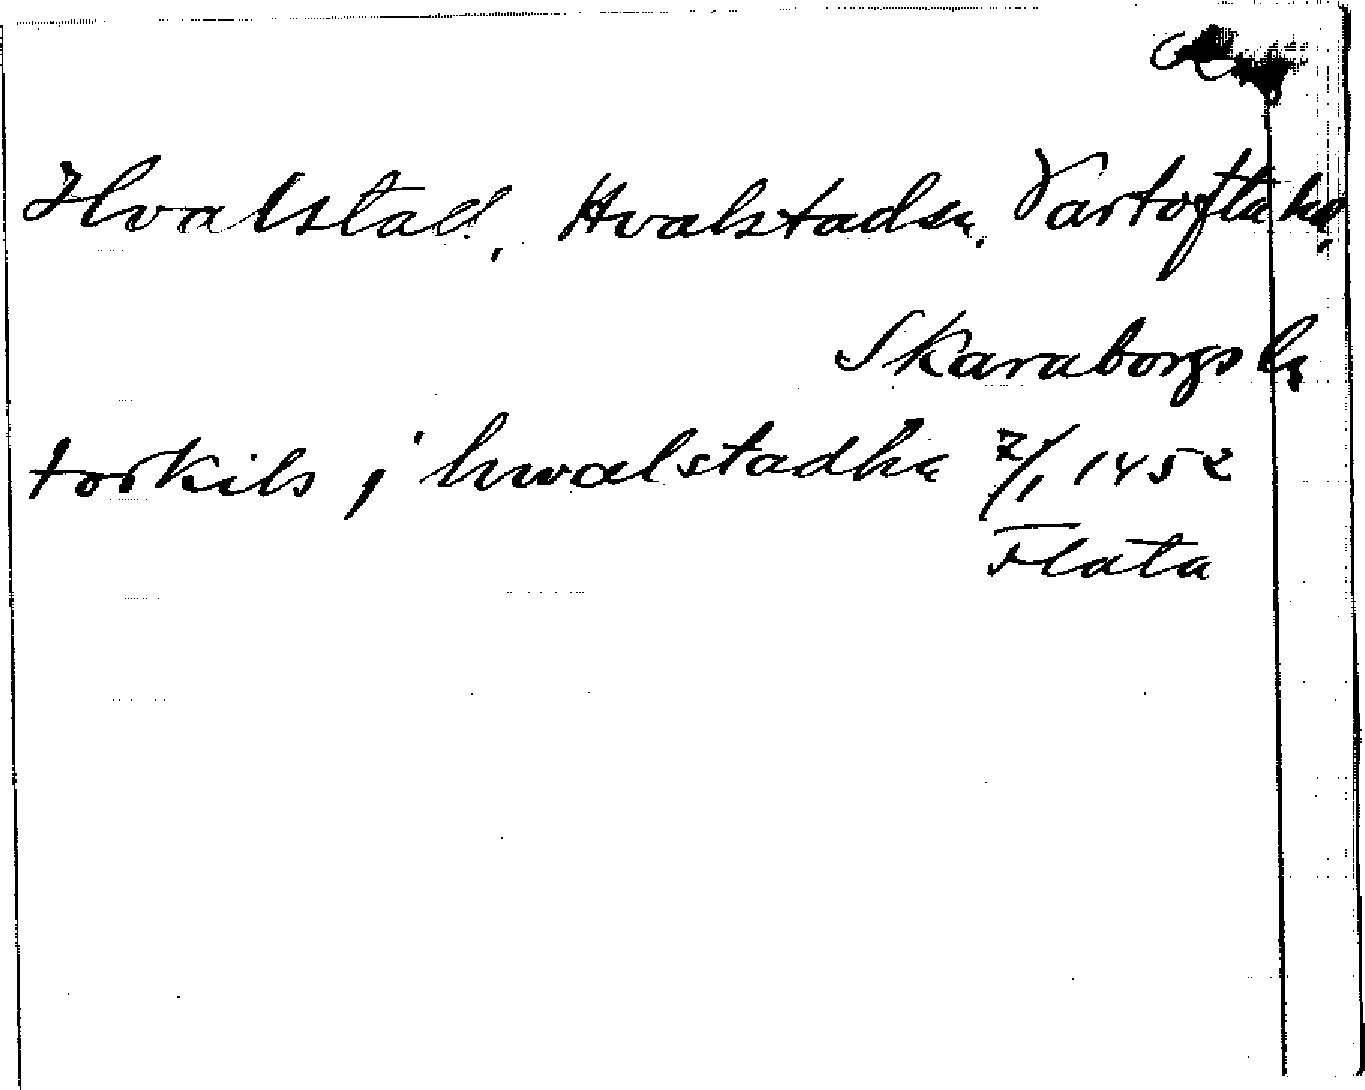 Hvalstad, Hvalstadsn, Vartofta hd,
Skaraborgs l.
torkils j hwalstadha 7/1 1452
Flata